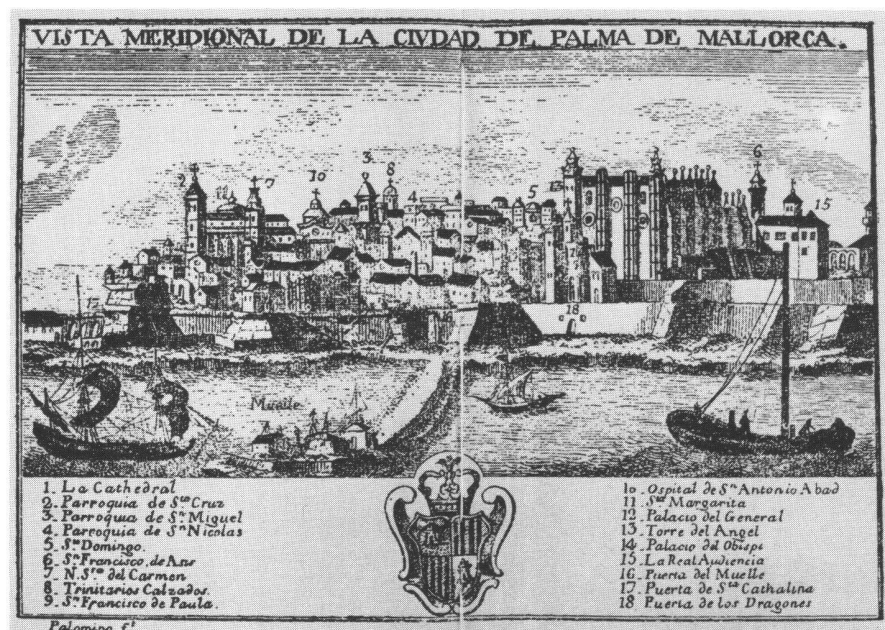 VISTA MERIDIONAL DE LA CIVDAD DE PALMA DE MALLORCA.
2
11
7
10
3
8
4
5
13
6
15
17
18
12
Muelle
1. La Cathedral
2. Parroquia de Sta Cruz
3. Parroquia de Sn Miguel
4. Parroquia de Sn Nicolas
5. Sto Domingo.
6. Sn Francisco de Asis
7. N. Sra del Carmen
8. Trinitarios Calzados.
9. Sn Francisco de Paula.
10. Ospital de Sn Antonio Abad
11. Sta Margarita
12. Palacio del General
13. Torre del Angel
14. Palacio del Obispi
15. La Real Audiencia
16. Puerta del Muelle
17. Puerta de Sta Cathalina
18 Puerta de los Dragones
Palomino ft